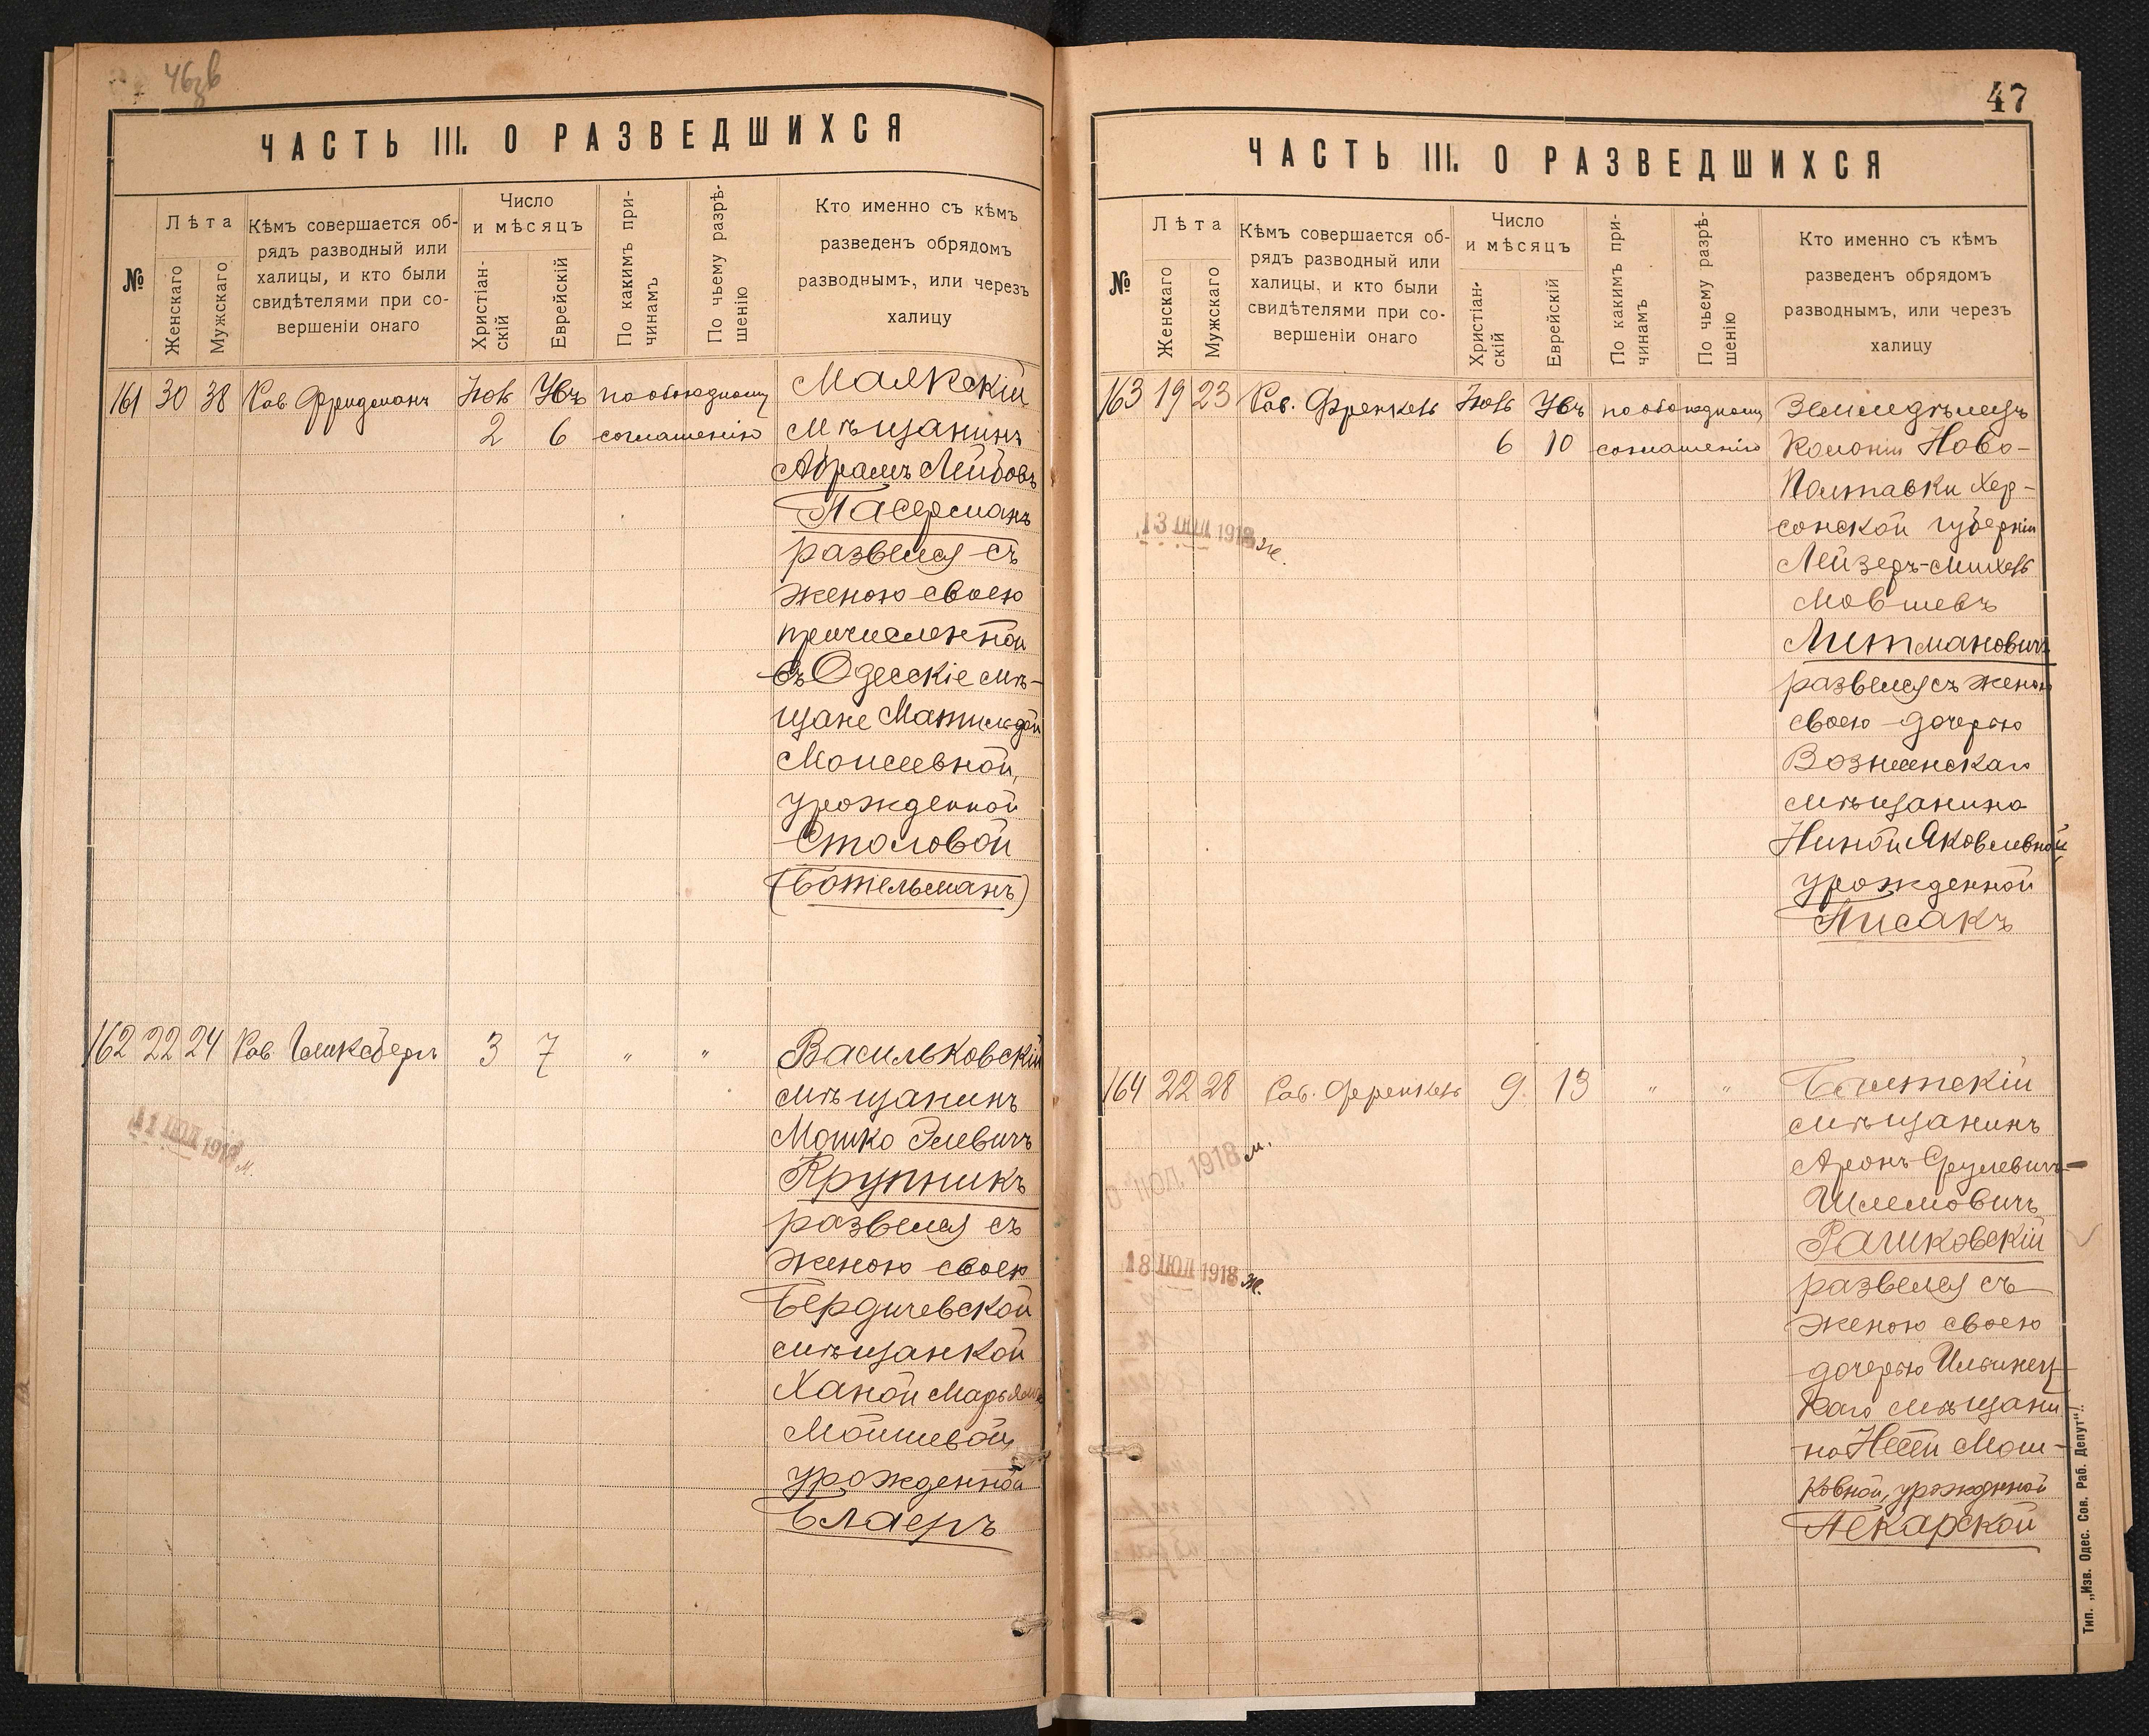 46зв
ЧАСТЬ III. О РАЗВЕДШИХСЯ
№
Лѣта
Женскаго
Мужскаго
Кѣмъ совершается об-
рядъ разводный или
халицы, и кто были
свидѣтелями при со-
вершеніи онаго
Число
и мѣсяцъ
Христіан-
скій
Еврейскій
По какимъ при-
чинамъ
По чьему разрѣ-
шенію
Кто именно съ кѣмъ
разведенъ обрядомъ
разводнымъ, или черезъ
халицу
161 30 38 Рав Фридманъ
2 6
по обоюдному
соглашенію
Маякскій
мѣщанинъ
Абрамъ Лейбовъ
Пасерманъ
развелся съ
женою своею
причисленной
въ Одесскіе мѣ-
щане Матильдой
Моисеевной,
урожденной
Столовой
(Ботельманъ)
162 22 24 Рав Гликсбергъ 3 7 " "
11 ІЮЛ 1918 м.
Васильковскій
мѣщанинъ
Мошко Элевичъ
Крупникъ
развелся съ
женою своею
Бердичевской
мѣщанкой
Ханой Марьямъ
Мошиевой,
урожденной
Блаеръ
47
ЧАСТЬ III. О РАЗВЕДШИХСЯ
№
Лѣта
Женскаго
Мужскаго
Кѣмъ совершается об-
рядъ разводный или
халицы, и кто были
свидѣтелями при со-
вершеніи онаго
Число
и мѣсяцъ
Христіан-
скій
Еврейскій
По какимъ при-
чинамъ
По чьему разрѣ-
шенію
Кто именно съ кѣмъ
разведенъ обрядомъ
разводнымъ, или черезъ
халицу
163 19 23 Рав. Френкель
6 10
по обоюдному
соглашенію
13 ІЮЛ 1918 ж.
Земледѣлецъ
Колоніи Ново-
Полтавки Хер-
сонской губерніи
Лейзеръ-Михель
Мовшевъ
Литмановичъ
развелся съ женою
своею дочерью
Вознесенскаго
мѣщанина
Ниной Яковлевной
урожденной
Писакъ
164 22 28 Рав. Френкель 9. 13 " "
ІЮЛ 1918 м.
18 ІЮЛ 1918 ж.
Балтскій
мѣщанинъ
Аронъ Срулевичъ-
Шлемовичъ
Рашковскій
развелся съ
женою своею
дочерью Ильинец-
каго мѣщани-
на Несей Мош-
ковной, урожденной
Пекарской
Тип. „Изв. Одес. Сов. Раб. Депут“.